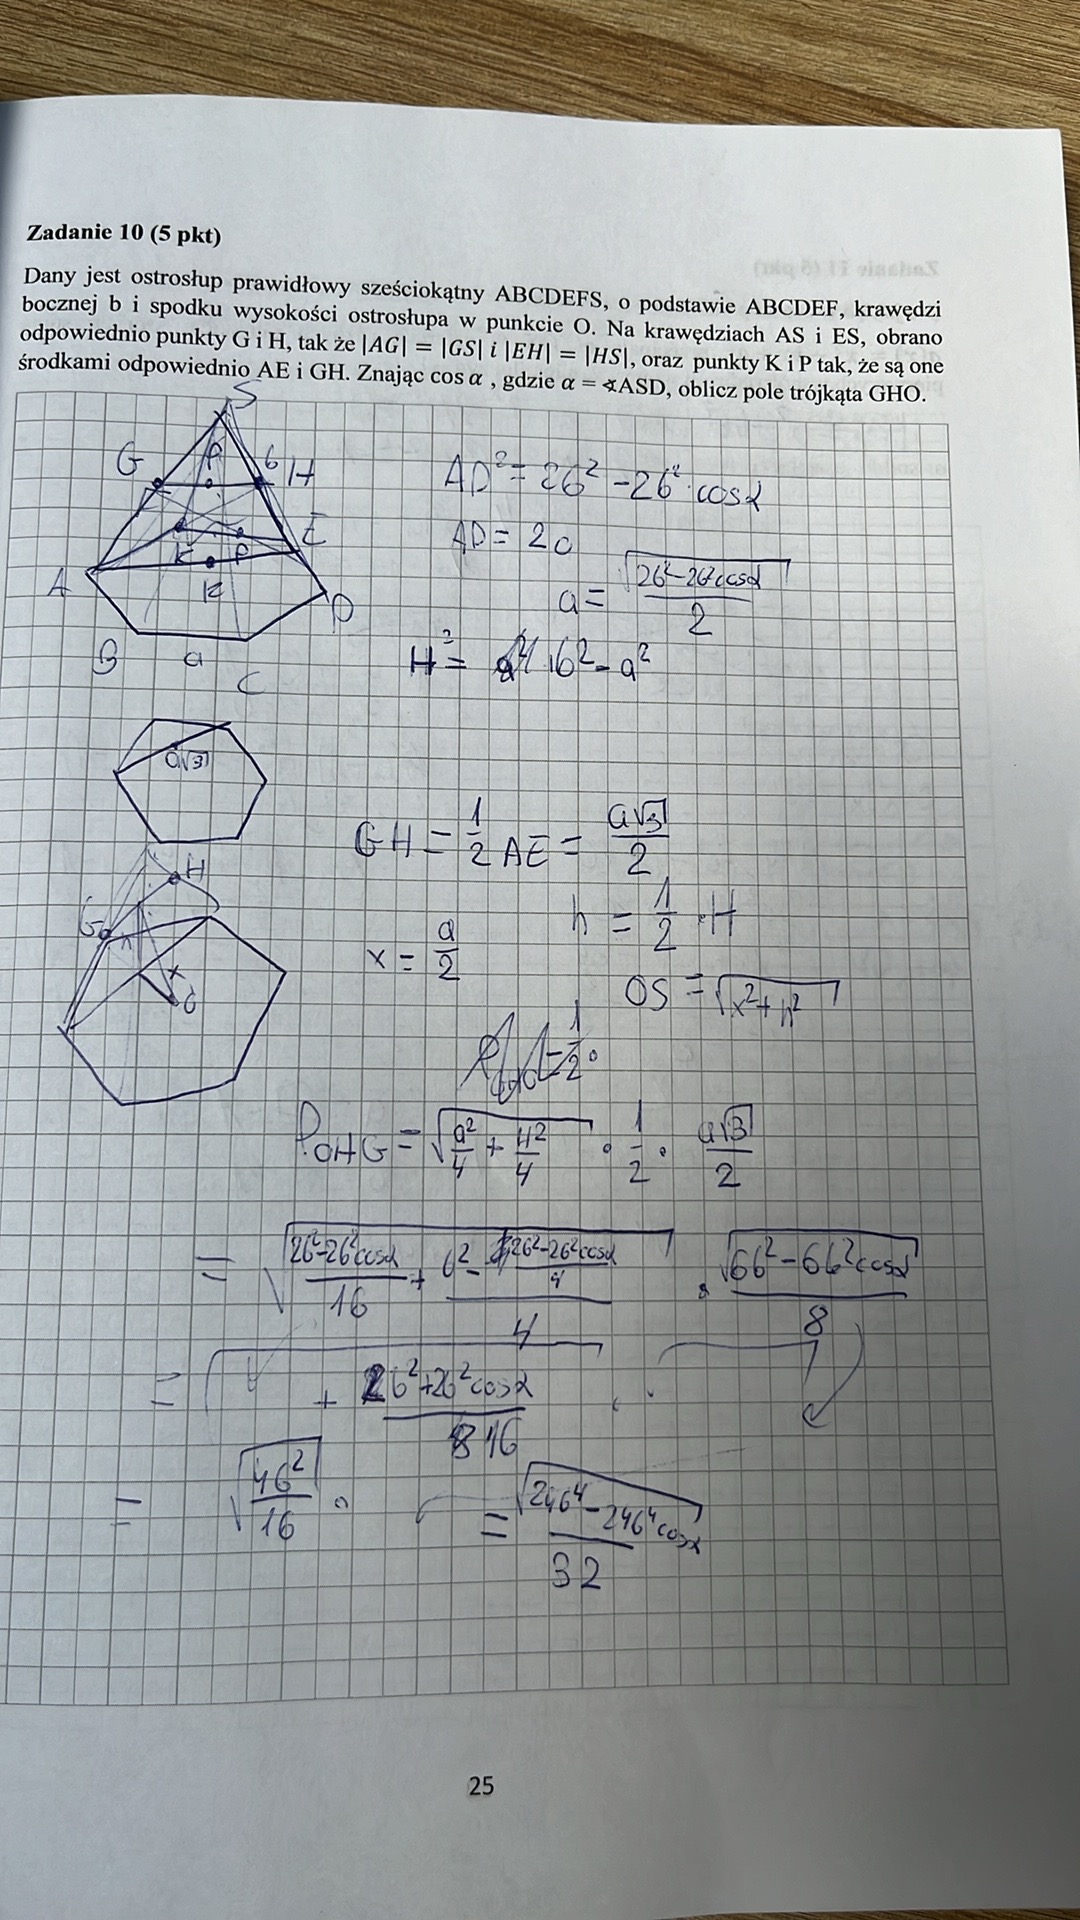 Zadanie 10 (5 pkt)
Dany jest ostrosłup prawidłowy sześciokątny ABCDEFS, o podstawie ABCDEF, krawędzi
bocznej b i spodku wysokości ostrosłupa w punkcie O. Na krawędziach AS i ES, obrano
odpowiednio punkty G i H, tak że |AG| = |GS| i |EH| = |HS|, oraz punkty K i P tak, że są one
środkami odpowiednio AE i GH. Znając cos α , gdzie α = ∢ASD, oblicz pole trójkąta GHO.
S
G P b H
E
A K P
K D
B a C
AD² = 2b² - 2b² · cosα
AD = 2a
a = √(2b²-2b²cosα) / 2
H² = b² - a²
a√3
GH = 1/2 AE = a√3/2
H
G
h = 1/2 · H
x = a/2
x
O
OS = √(x²+h²)
P_OHG = √(a²/4 + H²/4) · 1/2 · a√3/2
= √((2b²-2b²cosα)/16 + (b² - (2b²-2b²cosα)/4)/4) · √(6b²-6b²cosα)/8
= + (2b²+2b²cosα)/16
= √(4b²/16) · = √(24b⁴-24b⁴cosα)/32
25